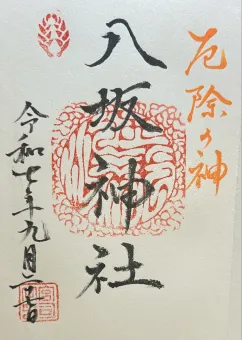 厄除の神
八坂神社
令和七年九月二十二日